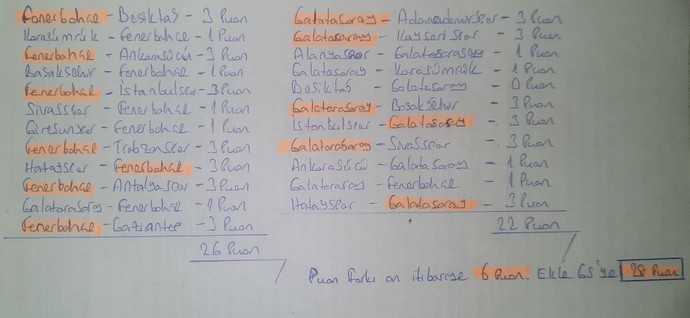 Fenerbahçe - Beşiktaş - 3 Puan
Karagümrük - Fenerbahçe - 1 Puan
Fenerbahçe - Ankaragücü - 3 Puan
Başakşehir - Fenerbahçe - 1 Puan
Fenerbahçe - İstanbulspor - 3 Puan
Sivasspor - Fenerbahçe - 1 Puan
Giresunspor - Fenerbahçe - 1 Puan
Fenerbahçe - Trabzonspor - 3 Puan
Hatayspor - Fenerbahçe - 3 Puan
Fenerbahçe - Antalyaspor - 3 Puan
Galatasaray - Fenerbahçe - 1 Puan
Fenerbahçe - Gaziantep - 3 Puan
26 Puan
Galatasaray - Adanademirspor - 3 Puan
Galatasaray - Kayserispor - 3 Puan
Alanyaspor - Galatasaray - 1 Puan
Galatasaray - Karagümrük - 1 Puan
Beşiktaş - Galatasaray - 0 Puan
Galatasaray - Başakşehir - 3 Puan
İstanbulspor - Galatasaray - 3 Puan
Galatasaray - Sivasspor - 3 Puan
Ankaragücü - Galatasaray - 1 Puan
Galatasaray - Fenerbahçe - 1 Puan
Hatayspor - Galatasaray - 3 Puan
22 Puan
Puan farkı an itibariyle 6 Puan. Ekle GS'ye 28 Puan